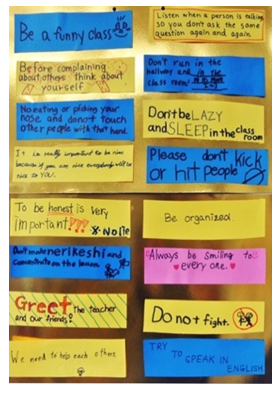 Be a funny class
Listen when a person is talking
SO you don't ask the same
question again and again.
Before complaining
about others think about
yourself
Don't run in the
hallway and in the
class room!
No eating or picking your
nose and don't touch
other people with that hand.
Don't be LAZY
and SLEEP in the class
room
It is really important to be nice
because if you are nice everybody will be
nice to you.
Please don't kick
or hit people
To be honest is very
important!!!
Be organized
Don't make nerikeshi and
concentrate on the lesson.
Always be smiling to
every one.
Greet The teacher
and our friends!
Do not fight.
We need to help each others
TRY
TO SPEAK IN
ENGLISH